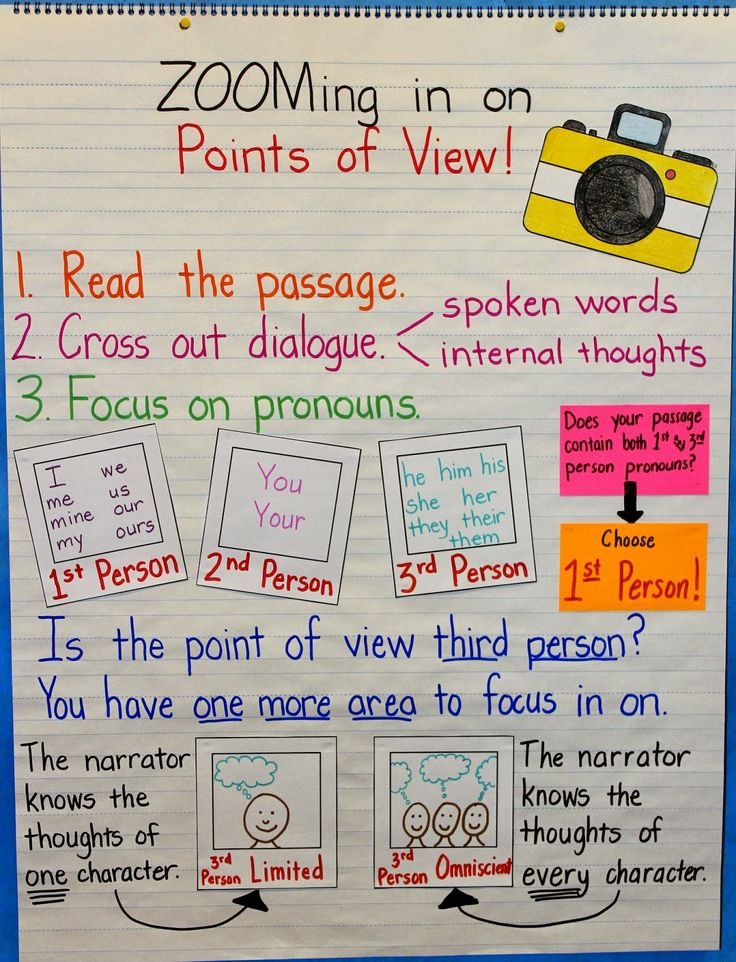 ZOOMing in on
Points of View!
1. Read the passage.
2. Cross out dialogue.
spoken words
internal thoughts
3. Focus on pronouns.
I we
me us
mine our
my ours
1st Person
You
Your
2nd Person
he him his
she her
they their
them
3rd Person
Does your passage
contain both 1st & 3rd
person pronouns?
Choose
1st Person!
Is the point of view third person?
You have one more area to focus in on.
The narrator
knows the
thoughts of
one character.
3rd Person Limited
3rd Person Omniscient
The narrator
knows the
thoughts of
every character.